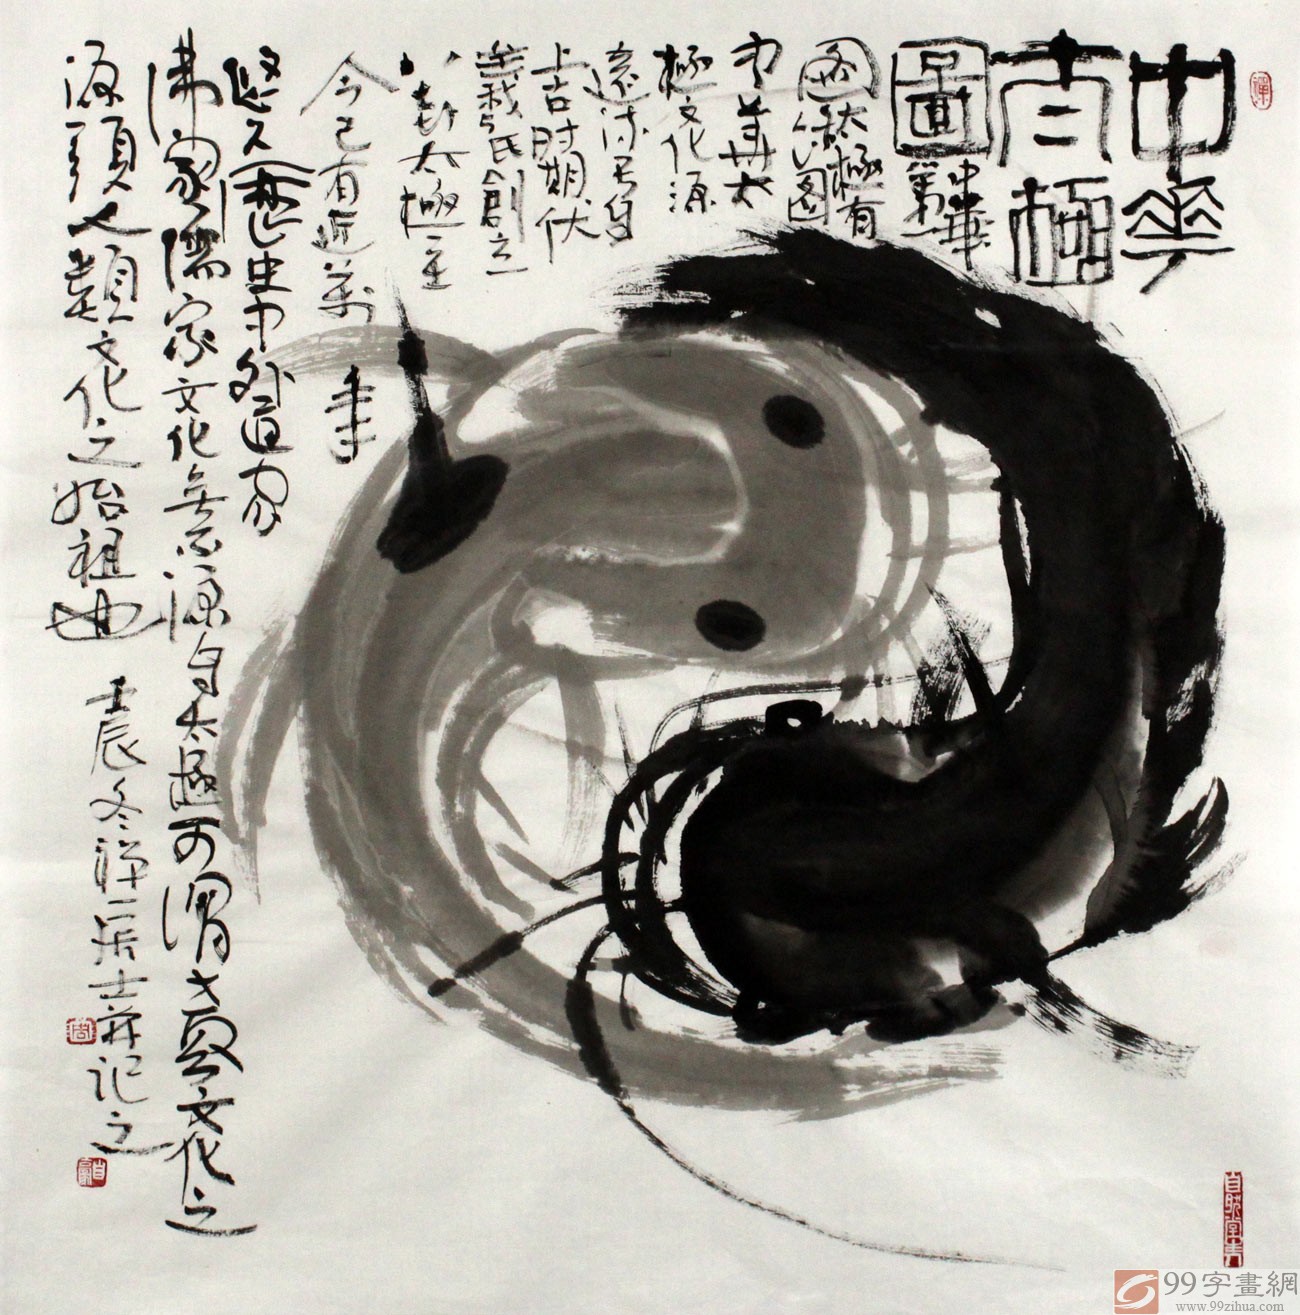 中華
太極
圖
中華第一
太極有
圖
中華太
極文化源
遠流長自
上古时期伏
羲氏創立
太極至
今已有近萬
年
悠久歷史中外道家
佛家儒家文化無不源自太極可謂文化之
源頭人類文化之始祖也
壬辰冬禪一居士并记之
99字畫網
www.99zihua.com